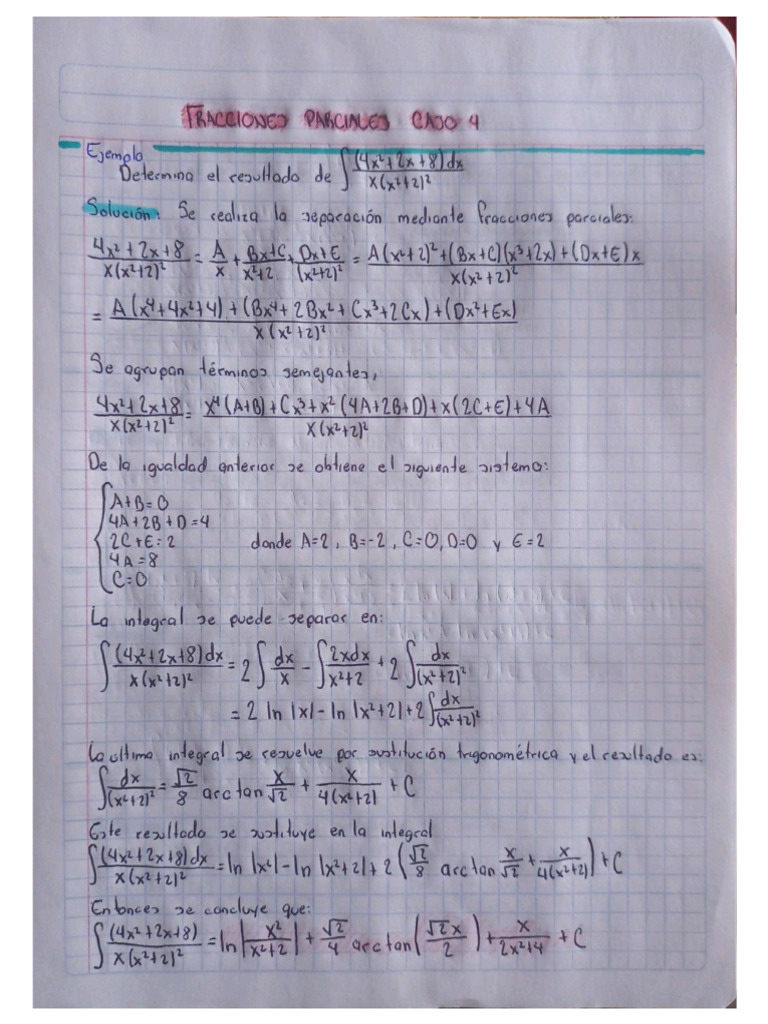 FRACCIONES PARCIALES CASO 4
Ejemplo
Determina el resultado de ∫ (4x²+2x+8)dx / x(x²+2)²
Solución: Se realiza la separación mediante fracciones parciales:
4x²+2x+8 / x(x²+2)² = A/x + Bx+C / x²+2 + Dx+E / (x²+2)² = A(x²+2)²+(Bx+C)(x³+2x)+(Dx+E)x / x(x²+2)²
= A(x⁴+4x²+4)+(Bx⁴+2Bx²+Cx³+2Cx)+(Dx²+Ex) / x(x²+2)²
Se agrupan términos semejantes,
4x²+2x+8 / x(x²+2)² = x⁴(A+B)+Cx³+x²(4A+2B+D)+x(2C+E)+4A / x(x²+2)²
De la igualdad anterior se obtiene el siguiente sistema:
A+B=0
4A+2B+D=4
2C+E=2 donde A=2, B=-2, C=0, D=0 y E=2
4A=8
C=0
La integral se puede separar en:
∫ (4x²+2x+8)dx / x(x²+2)² = 2∫ dx/x - ∫ 2xdx / x²+2 + 2∫ dx / (x²+2)²
= 2 ln |x| - ln |x²+2| + 2∫ dx / (x²+2)²
La última integral se resuelve por sustitución trigonométrica y el resultado es:
∫ dx / (x²+2)² = √2/8 arctan x/√2 + x / 4(x²+2) + C
Este resultado se sustituye en la integral
∫ (4x²+2x+8)dx / x(x²+2)² = ln |x²| - ln |x²+2| + 2 (√2/8 arctan x/√2 + x / 4(x²+2)) + C
Entonces se concluye que:
∫ (4x²+2x+8) / x(x²+2)² = ln |x² / x²+2| + √2/4 arctan (√2x / 2) + x / 2x²+4 + C